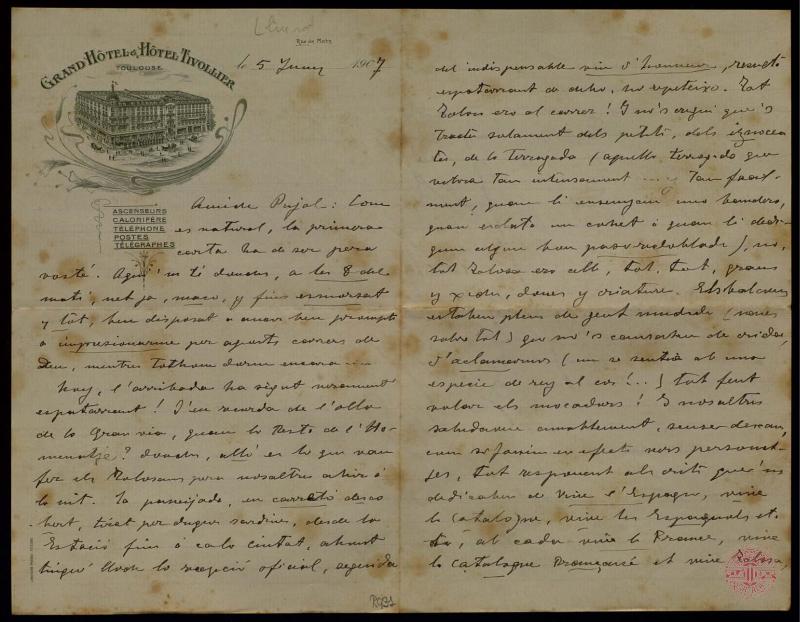 Llimona
Rue de Metz
GRAND HÔTEL & HÔTEL TIVOLLIER
TOULOUSE
le 5 Juny 1907
ASCENSEURS
CALORIFÈRE
TÉLÉPHONE
POSTES
TÉLÉGRAPHES
Amich Pujol: Com
es natural, la primera
carta ha de ser pera
vosté. Aquí 'm té doncas, a les 8 del
matí, net ja, maco, y fins esmorsat
y tot, ben disposat a anar ben prompte
a impresionarme per aquets carrers de
Deu, mentres tothom dorm encara
Noy, l'arribada ha sigut verament
espatarrant! S'en recorda de l'alló
de la Gran via, quan la festa de l'Ho-
menatje? doncas, alló es lo que van
fer els Tolosans pera nosaltres ahir á
la nit. La passejada, en carretó desco-
bert, tirat per dugues sardines, desde la
Estació fins á cala ciutat, ahont
tingué lloch la recepció oficial, seguida
del indispensable vin d'honneur, resultá
espatarrant de debó, ho repeteixo. Tot
Tolosa era al carrer! Y no's cregui que's
tractés solament dels petits, dels ignocen-
tes, de la terregada (aquella terregada que
vibra tan intensament y tan facil-
ment, quan li ensenyan una bandera,
quan esclata un cohet ó quan li dedi-
quen algun bon paso-redoblado), no,
tot Tolosa era allí, tot, tot, grans
y xichs, dones y criatures. Els balcons
estaben plens de gent mudada (nenes
sobre tot) que no's cansaben de cridar,
d'aclamarnos (un se sentía ab una
especie de rey al cos!...) tot fent
volar els mocadors! Y nosaltres
saludavem amablement, sense descans,
com si fossim en efecte uns personat-
ges, tot responent als crits que'ns
dedicaben de Vive l'Espagne, vive
la Catalogne, vive les Espagnols etc.
etc, ab cada vive la France, vive
la Catalogne Française et vive Tolosa,
R931